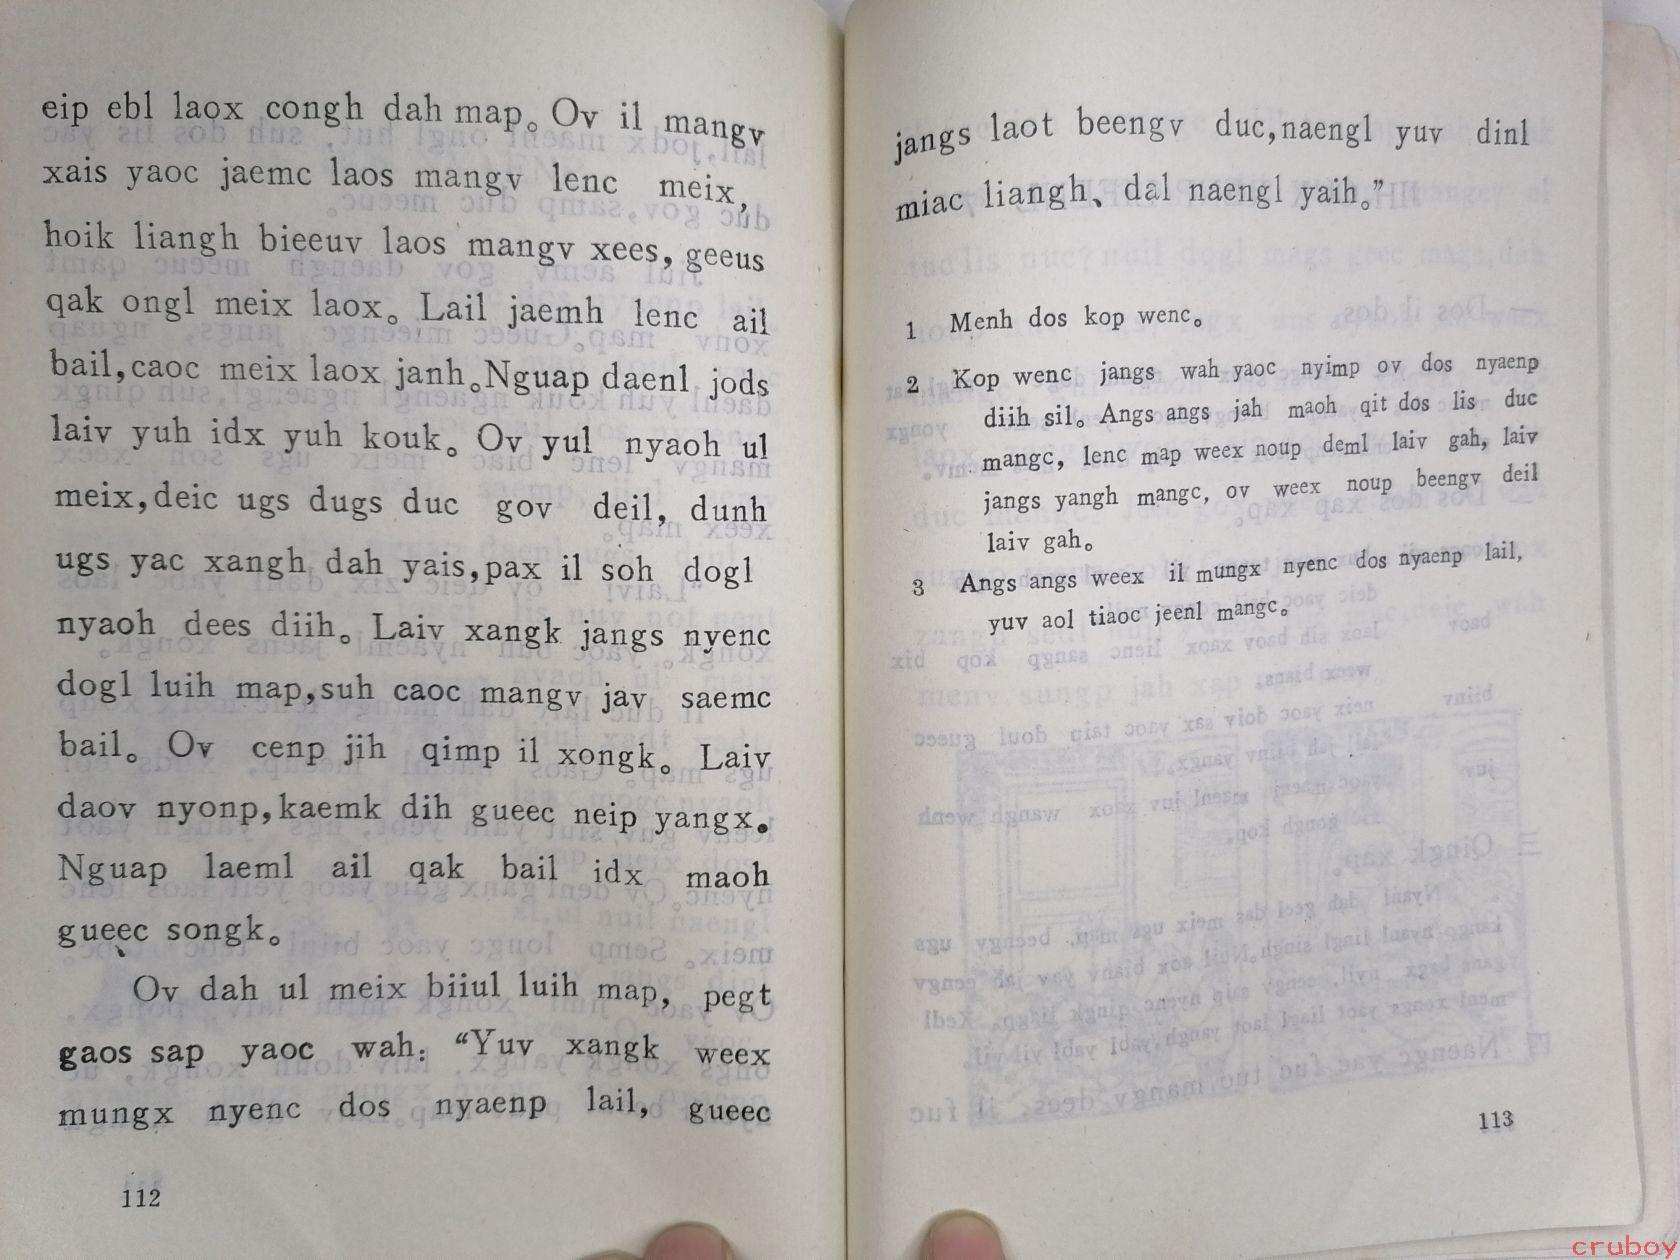 eip ebl laox congh dah map。Ov il mangv
xais yaoc jaemc laos mangv lenc meix,
hoik liangh bieeuv laos mangv xees, geeus
qak ongl meix laox。 Lail jaemh lenc ail
bail, caoc meix laox janh。Nguap daenl jods
laiv yuh idx yuh kouk。 Ov yul nyaoh ul
meix, deic ugs dugs duc gov deil, dunh
ugs yac xangh dah yais, pax il soh dogl
nyaoh dees diih。 Laiv xangk jangs nyenc
dogl luih map, suh caoc mangv jav saemc
bail。 Ov cenp jih qimp il xongk。 Laiv
daov nyonp, kaemk dih gueec neip yangx。
Nguap laeml ail qak bail idx maoh
gueec songk。
Ov dah ul meix biiul luih map, pegt
gaos sap yaoc wah: “Yuv xangk weex
mungx nyenc dos nyaenp lail, gueec
112
jangs laot beengv duc, naengl yuv dinl
miac liangh、dal naengl yaih。”
1 Menh dos kop wenc。
2 Kop wenc jangs wah yaoc nyimp ov dos nyaenp
diih sil。 Angs angs jah maoh qit dos lis duc
mangc, lenc map weex noup deml laiv gah, laiv
jangs yangh mangc, ov weex noup beengv deil
laiv gah。
3 Angs angs weex il mungx nyenc dos nyaenp lail,
yuv aol tiaoc jeenl mangc。
113
cruboy